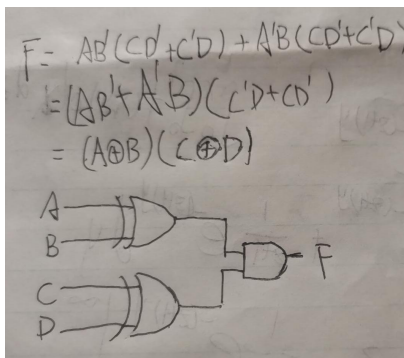 F = AB'(CD'+C'D)+A'B(CD'+C'D)
= (AB'+A'B)(C'D+CD')
= (A⊕B)(C⊕D)
A
B
F
C
D